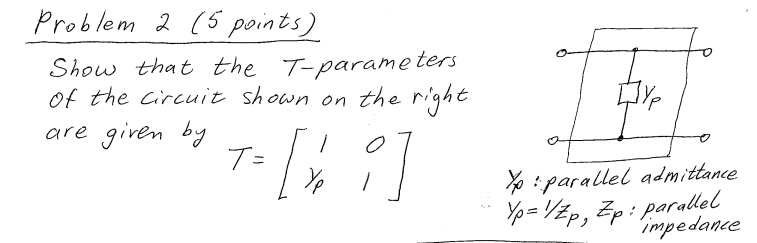 Problem 2 (5 points)
Show that the T-parameters
of the circuit shown on the right
are given by
T = [ 1 0
Yp 1 ]
Yp
Yp : parallel admittance
Yp = 1/Zp, Zp : parallel
impedance